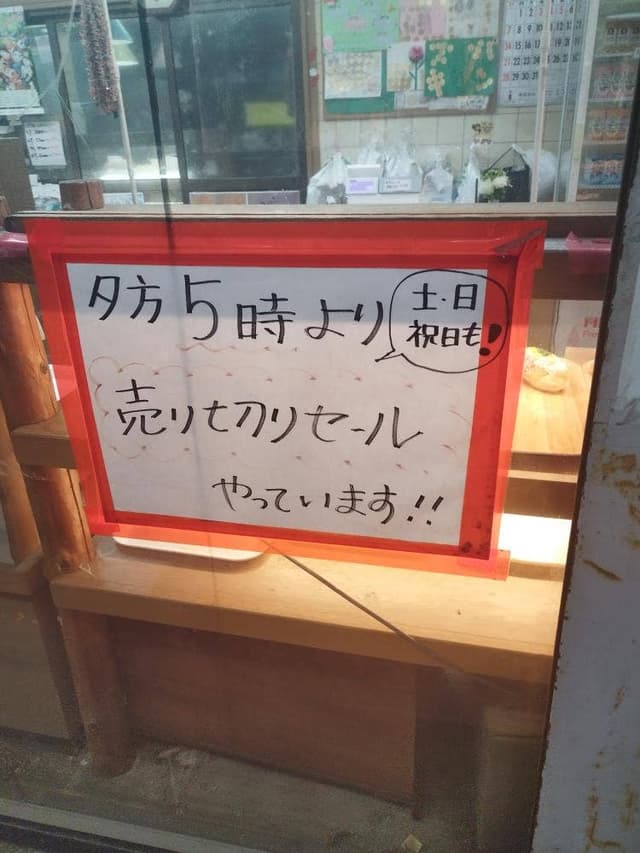 夕方5時より
土・日
祝日も!
売り切りセール
やっています!!